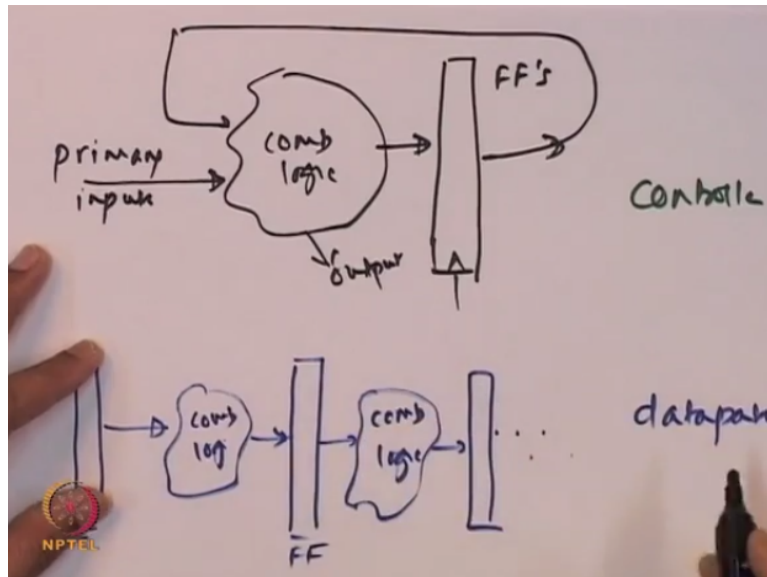 FF's
primary
inputs
comb
logic
output
Controlle
comb
log
comb
logic
datapat
FF
NPTEL